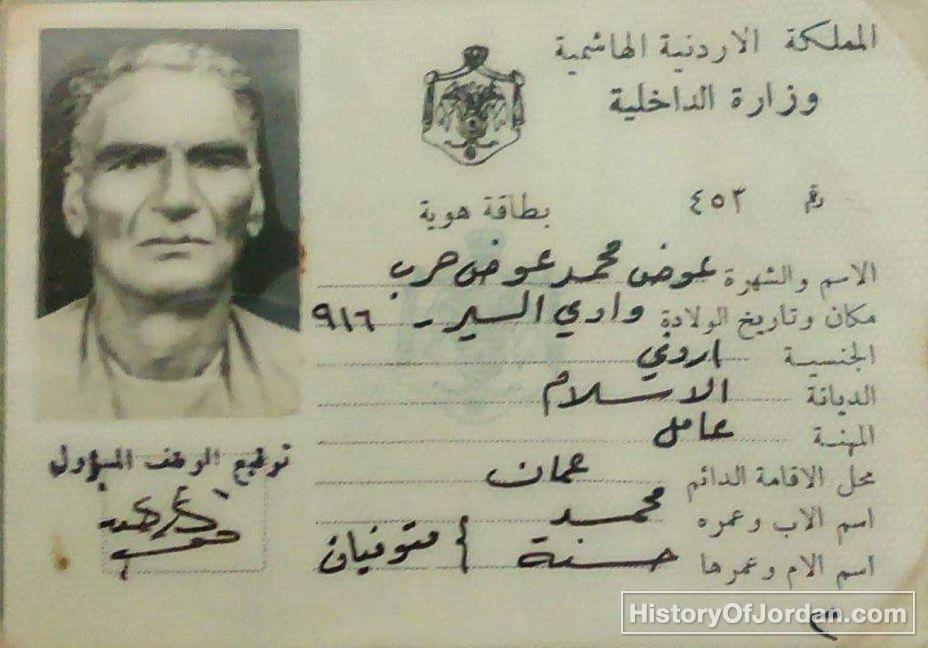 المملكة الاردنية الهاشمية
وزارة الداخلية
رقم ٤٥٣
بطاقة هوية
الاسم والشهرة عوض محمد عوض حرب
مكان وتاريخ الولادة وادي السير - ٩١٦
الجنسية اردني
الديانة الاسلام
المهنة عامل
محل الاقامة الدائم عمان
اسم الاب وعمره محمد
اسم الام وعمرها حسنة / متوفيان
توقيع الموظف المسؤول
HistoryOfJordan.com